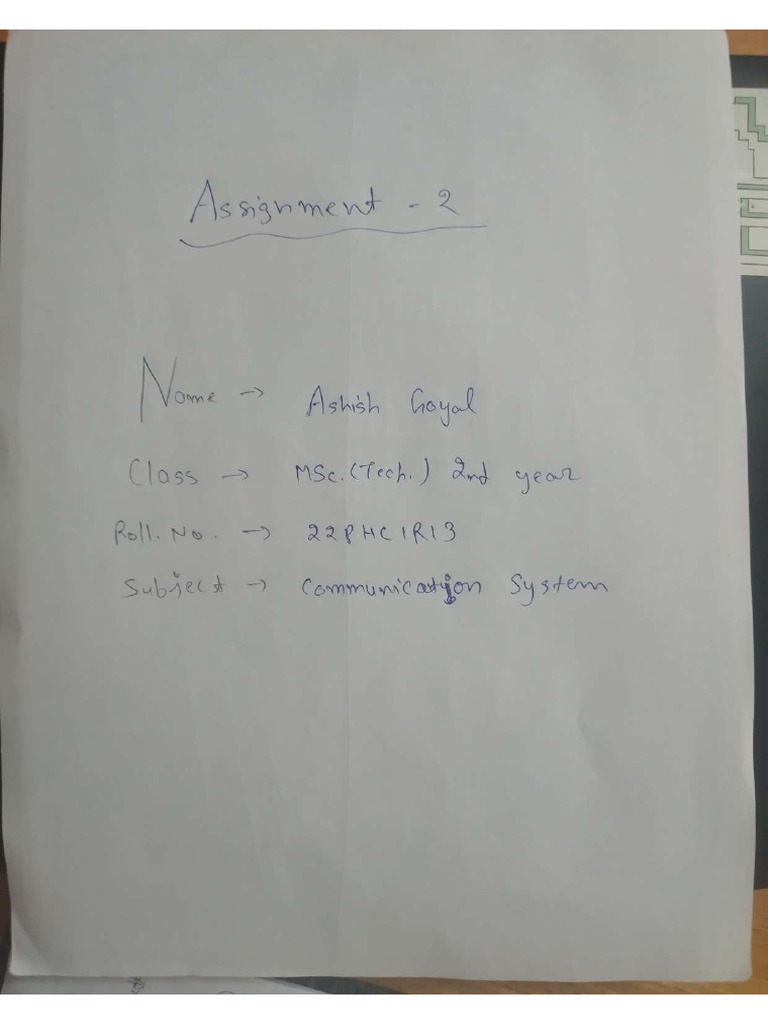 Assignment - 2
Name → Ashish Goyal
Class → MSc. (Tech.) 2nd year
Roll. No. → 22PHC1R13
Subject → Communication System